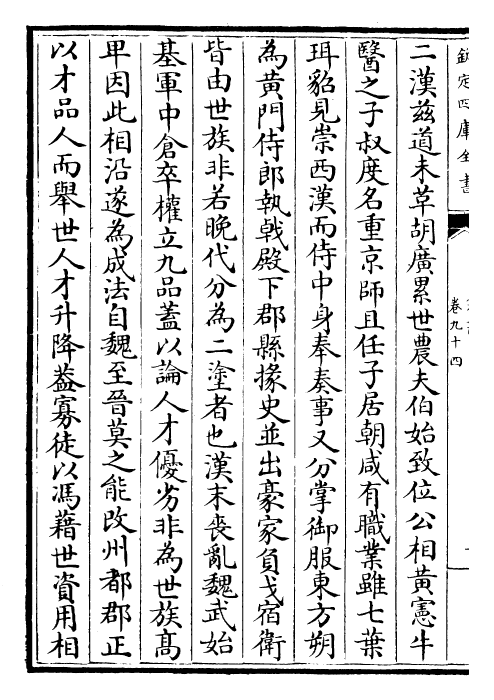 欽定四庫全書
卷九十四
二漢兹道未革胡廣累世農夫伯始致位公相黃憲牛
醫之子叔度名重京師且任子居朝咸有職業雖七葉
珥貂見崇西漢而侍中身奉奏事又分掌御服東方朔
為黃門侍郎執戟殿下郡縣掾史並出豪家負戈宿衛
皆由世族非若晚代分為二塗者也漢末喪亂魏武始
基軍中倉卒權立九品蓋以論人才優劣非為世族髙
卑因此相沿遂為成法自魏至晉莫之能改州都郡正
以才品人而舉世人才升降葢寡徒以馮藉世資用相